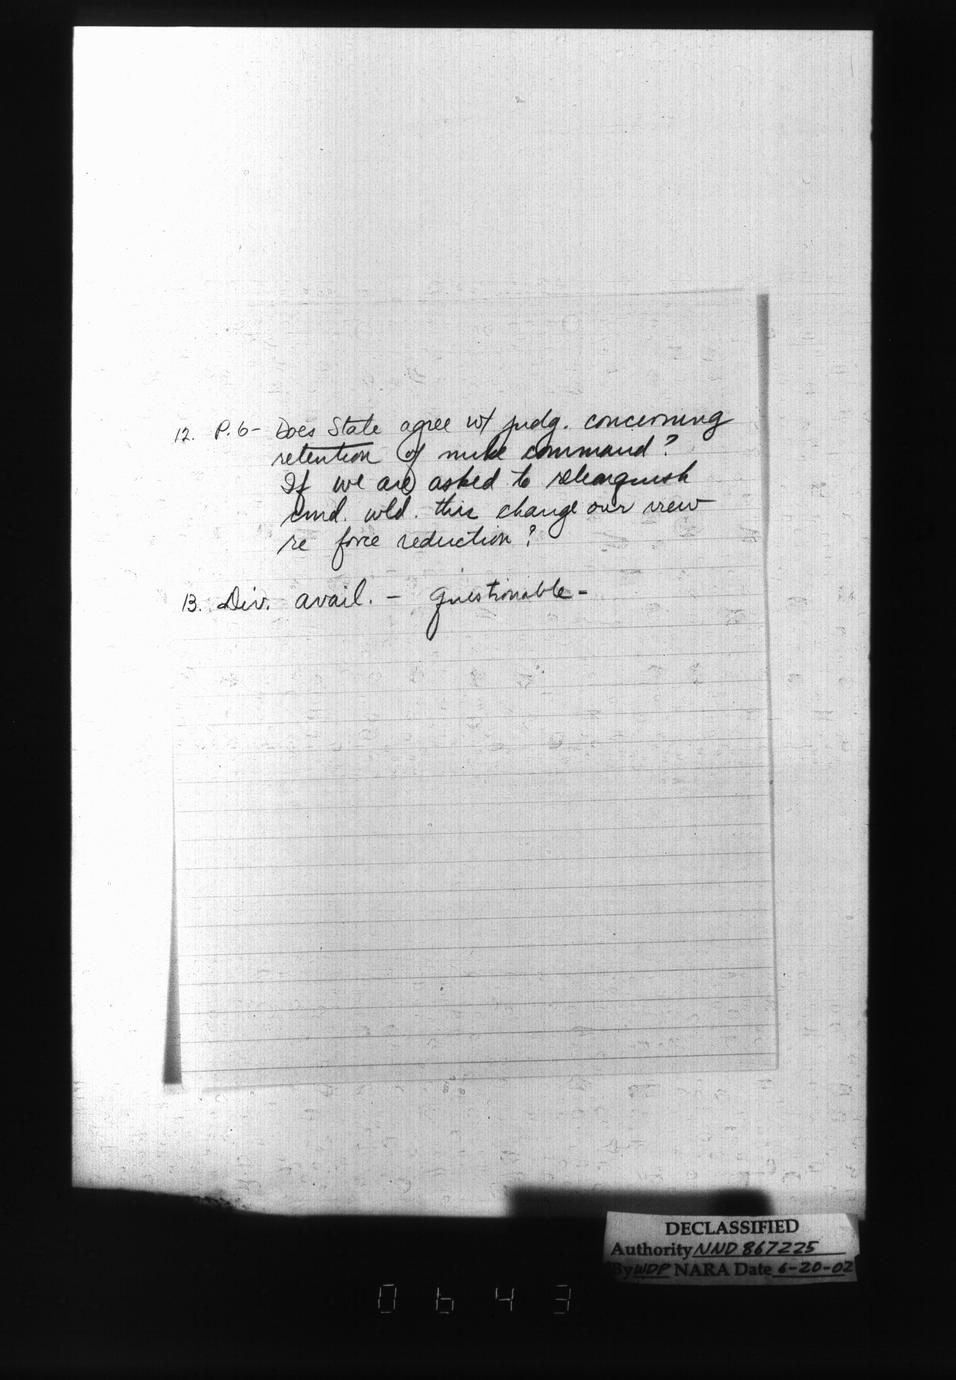 12. P.6- Does State agree w/ judg. concerning
retention of mil command?
If we are asked to relinquish
cmd. wld. this change our view
re force reduction?
13. Div. avail. - questionable -
DECLASSIFIED
Authority NND 867225
By WDP NARA Date 6-20-02
0643